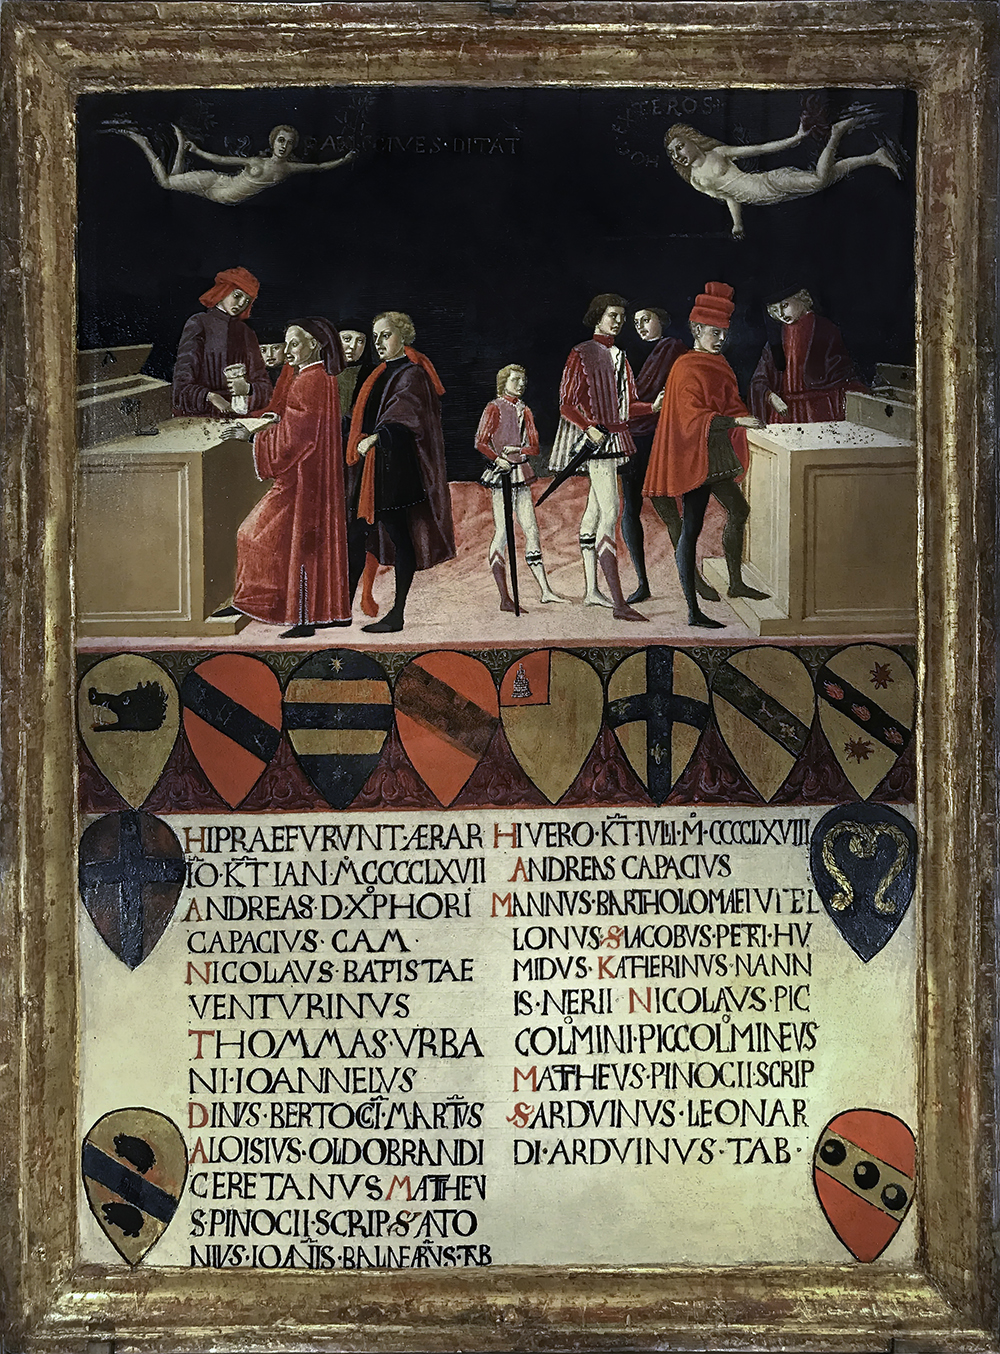 PAX CIVES·DITAT
HOC EXTEROS·
HI PRAEFVRVNT·ÆRAR
IO·KT IAN·M̊CCCCLXVII
ANDREAS·D·XP̊HORI
CAPACIVS·CAM·
NICOLAVS·BAPISTAE
VENTVRINVS
THOMMAS·VRBA
NI·IOANNELVS
DINVS·BERTOCCI·MARTIVS
ALOISIVS·OLDOBRANDI
CERETANVS MATHEV
S·PINOCII·SCRIP·S·ATO
NIVS·IOAÑIS·BALNEARVS·TAB
HI VERO·KT IVLI·M̊·CCCCLXVIII
ANDREAS CAPACIVS
MANNVS·BARTHOLOMAEI VITEL
LONVS·S·IACOBVS·PETRI·HV
MIDVS·KATHERINVS·NANN
IS·NERII NICOLAVS·PIC
COL̊MINI·PICCOL̊MINEVS
MATHEVS·PINOCII·SCRIP
SARDVINVS·LEONAR
DI·ARDVINVS·TAB·